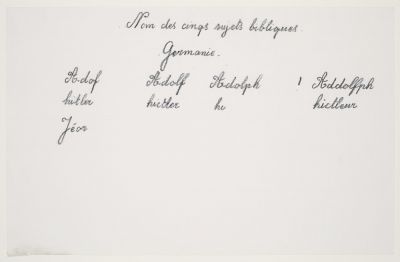 Nom des cinqs sujets bibliques.
Germanie.
Adof Adolf Adolph ! Addolfph
hitler hictler hi hictleur
Jéor